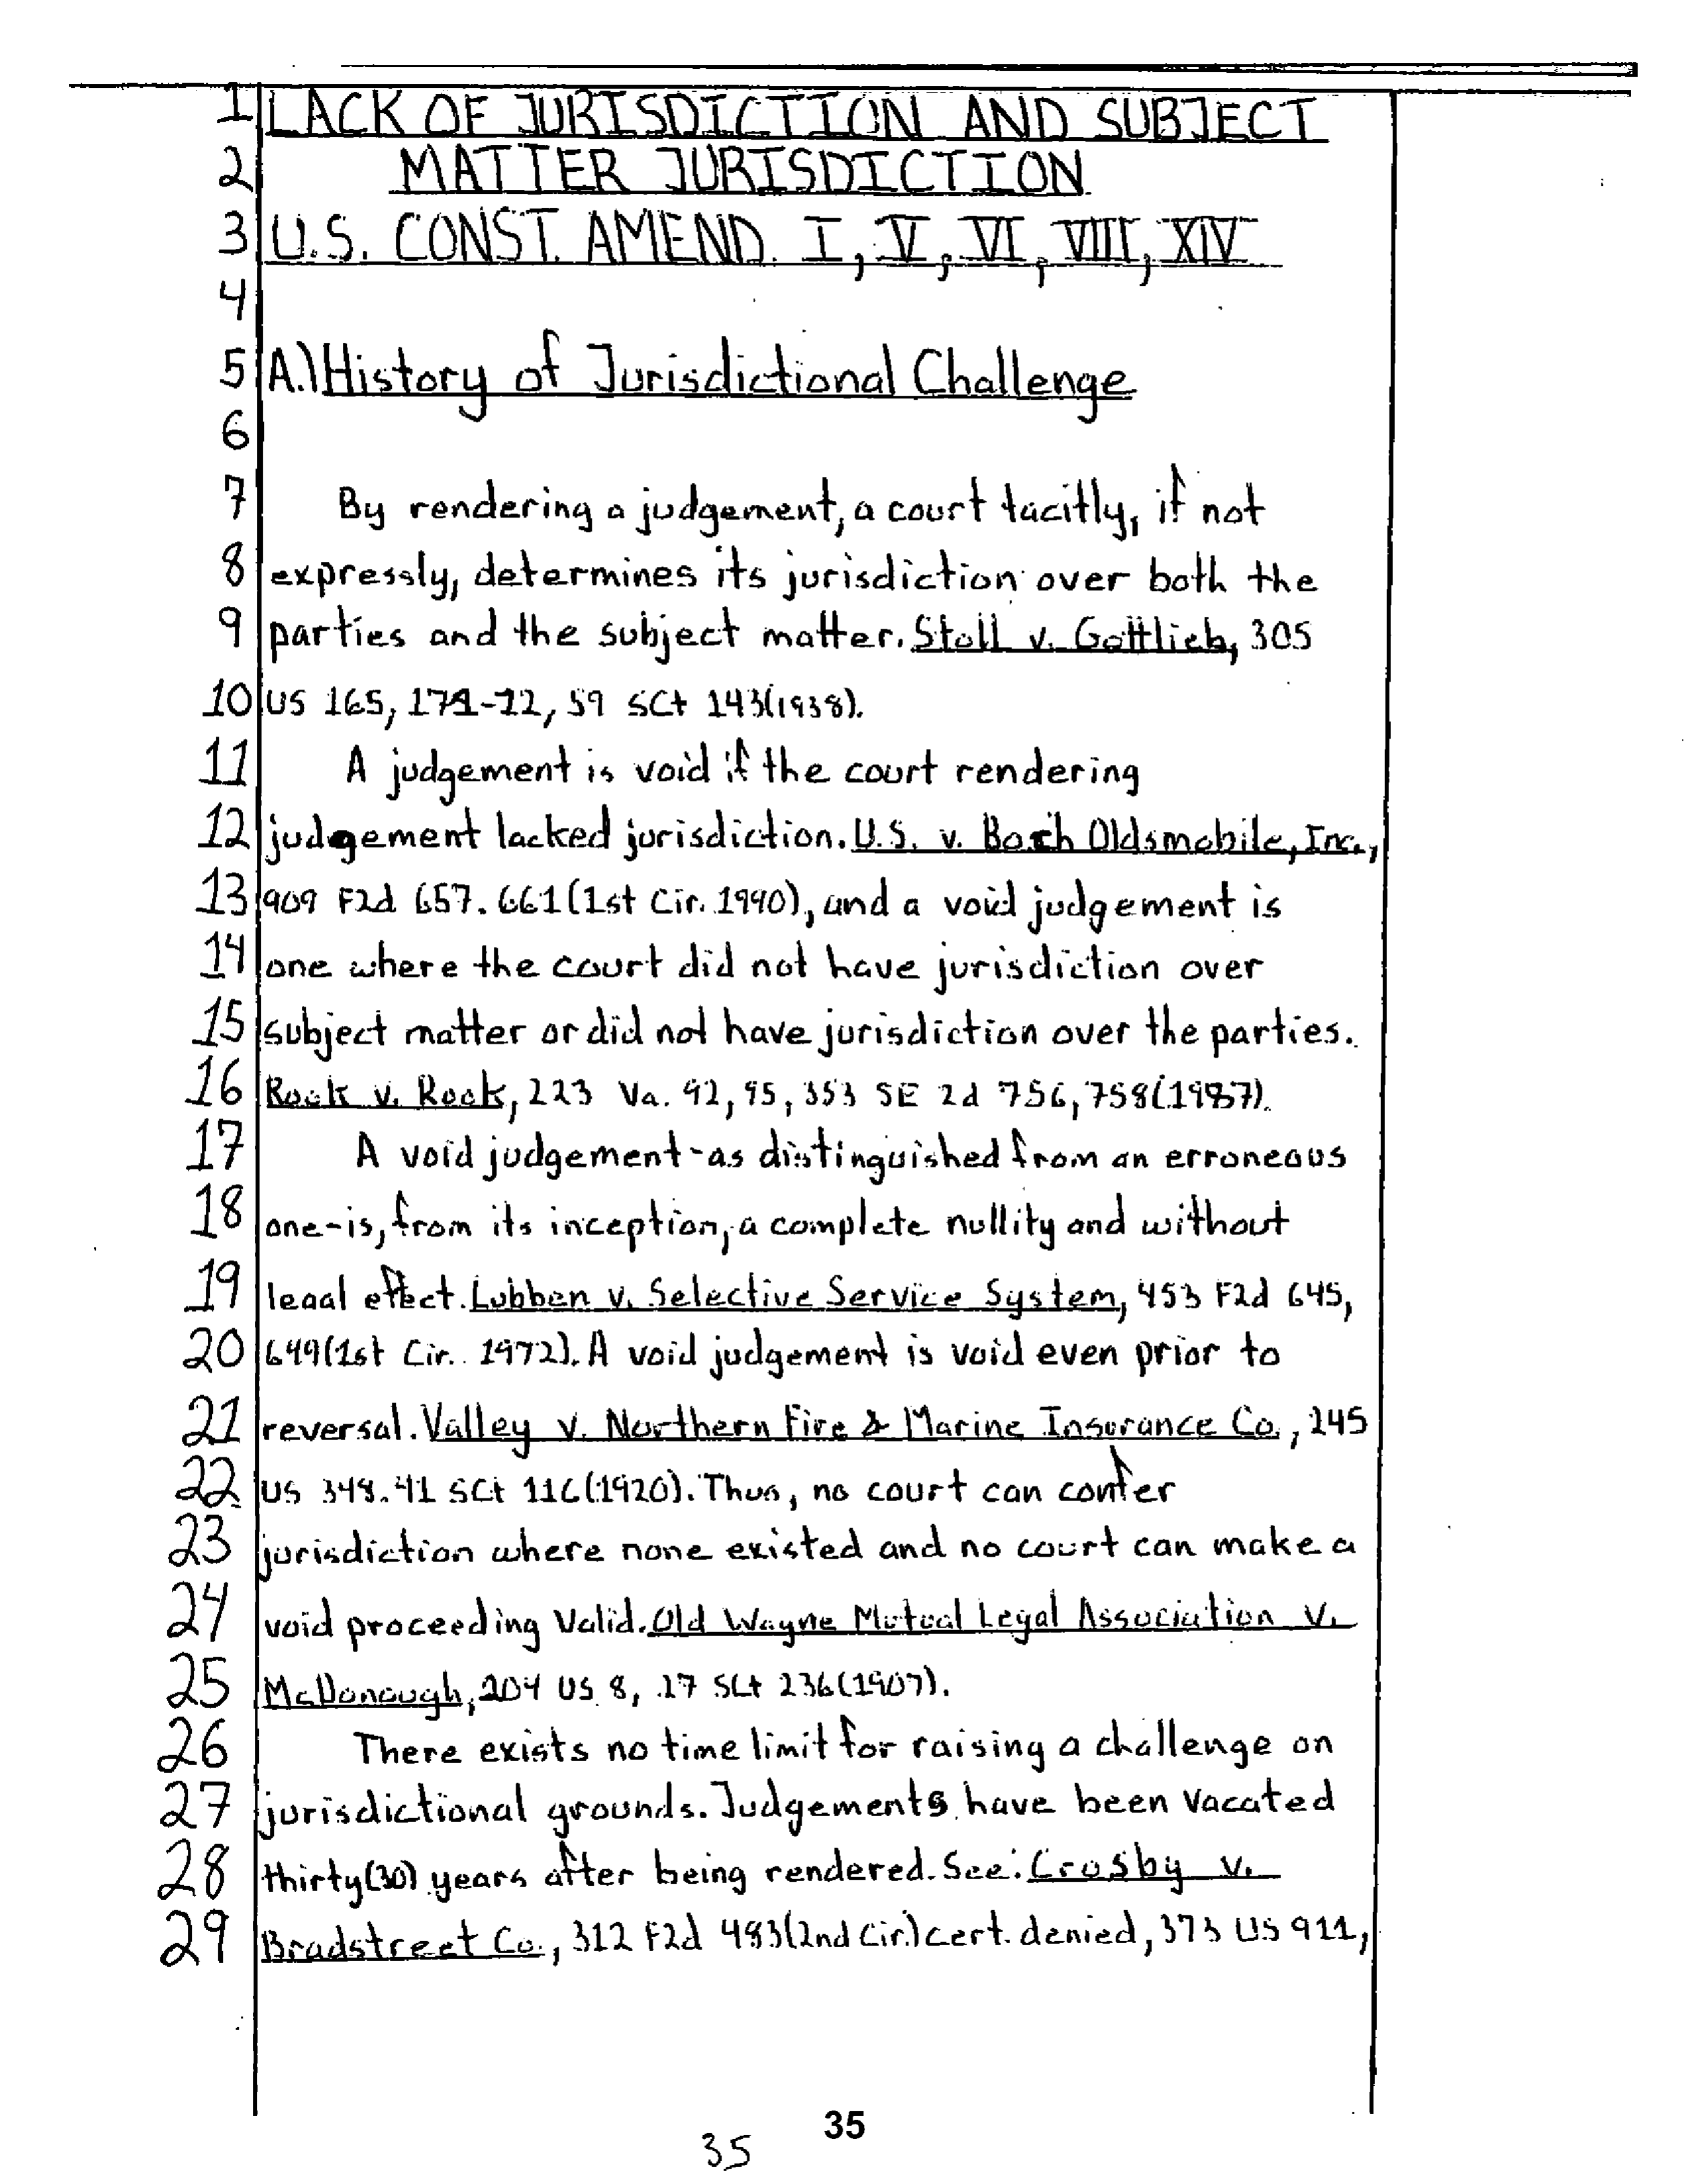 1 LACK OF JURISDICTION AND SUBJECT
2 MATTER JURISDICTION
3 U.S. CONST. AMEND. I, V, VI, VIII, XIV
4
5 A.) History of Jurisdictional Challenge
6
7 By rendering a judgement, a court tacitly, if not
8 expressly, determines its jurisdiction over both the
9 parties and the subject matter. Stoll v. Gottlieb, 305
10 US 165, 171-72, 59 SCt 143(1938).
11 A judgement is void if the court rendering
12 judgement lacked jurisdiction. U.S. v. Boch Oldsmobile, Inc.,
13 909 F2d 657. 661(1st Cir. 1990), and a void judgement is
14 one where the court did not have jurisdiction over
15 subject matter or did not have jurisdiction over the parties.
16 Rook v. Rook, 223 Va. 92, 95, 353 SE 2d 756, 758(1987).
17 A void judgement-as distinguished from an erroneous
18 one-is, from its inception, a complete nullity and without
19 legal effect. Lubben v. Selective Service System, 453 F2d 645,
20 649(1st Cir. 1972). A void judgement is void even prior to
21 reversal. Valley v. Northern Fire & Marine Insurance Co., 245
22 US 348. 41 SCt 116(1920). Thus, no court can confer
23 jurisdiction where none existed and no court can make a
24 void proceeding Valid. Old Wayne Mutual Legal Association v.
25 McDonough, 204 US 8, 27 SCt 236(1907).
26 There exists no time limit for raising a challenge on
27 jurisdictional grounds. Judgements have been vacated
28 thirty(30) years after being rendered. See: Crosby v.
29 Bradstreet Co., 312 F2d 483(2nd Cir.) cert. denied, 373 US 911,
35
35